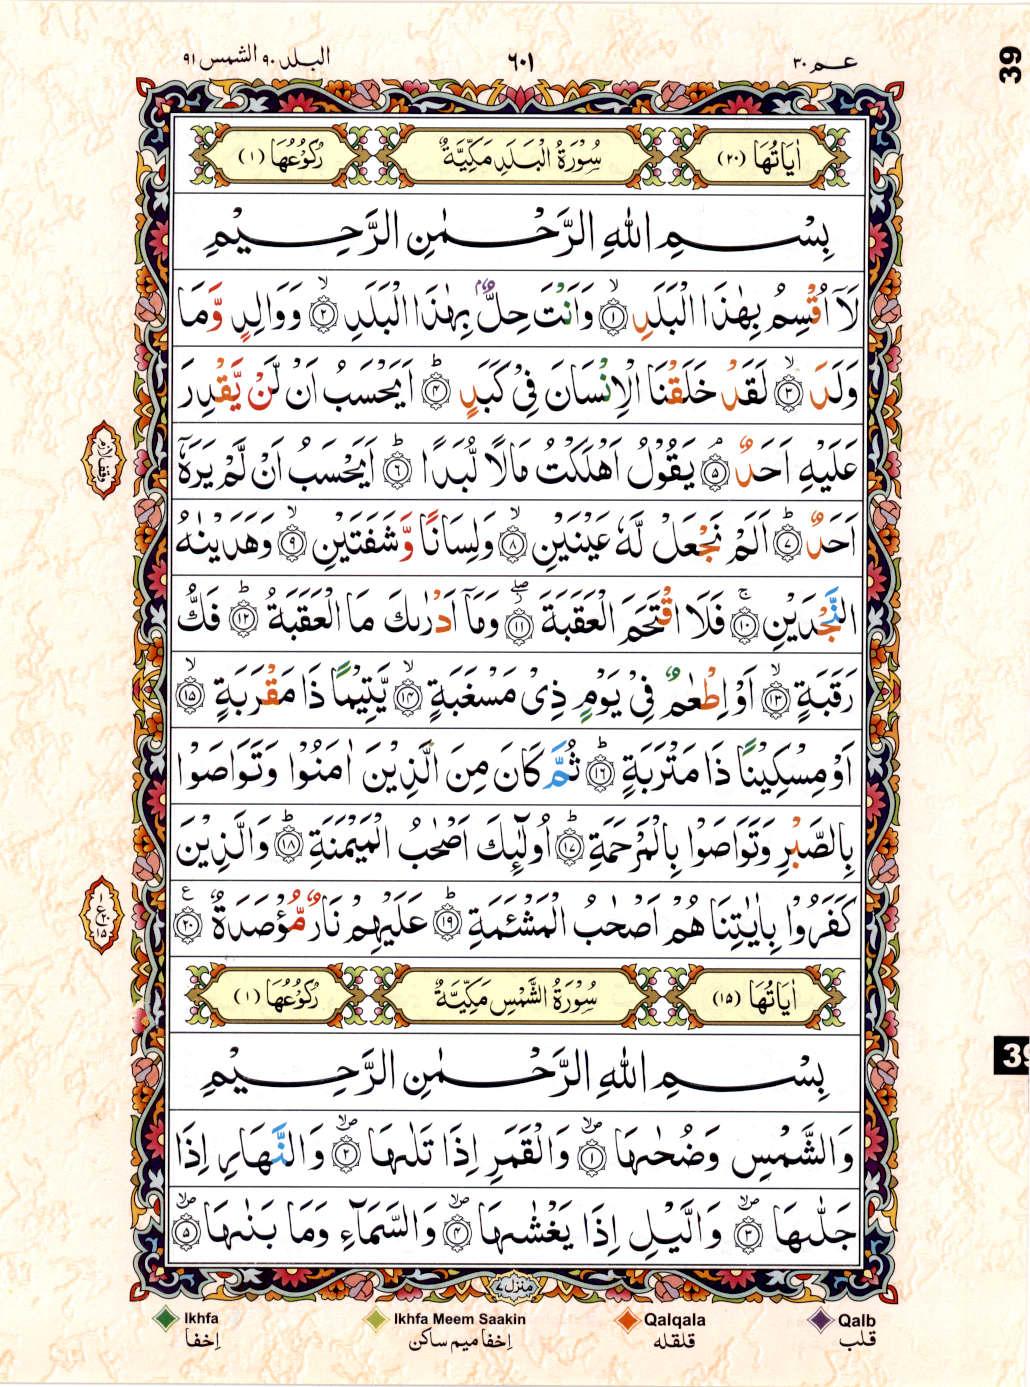 البلد ٩٠ الشمس ٩١
٦٠١
عـم ٣٠
39
اٰيَاتُهَا (٢٠) سُوْرَةُ الْبَلَدِ مَكِّيَّةٌ رُكُوْعُهَا (١)
بِسْمِ اللهِ الرَّحْمٰنِ الرَّحِيْمِ
لَاۤ اُقْسِمُ بِهٰذَا الْبَلَدِ ۙ﴿١﴾ وَاَنْتَ حِلٌّۢ بِهٰذَا الْبَلَدِ ۙ﴿٢﴾ وَوَالِدٍ وَّمَا
وَلَدَ ۙ﴿٣﴾ لَقَدْ خَلَقْنَا الْاِنْسَانَ فِیْ كَبَدٍ ؕ﴿٤﴾ اَيَحْسَبُ اَنْ لَّنْ يَّقْدِرَ
عَلَيْهِ اَحَدٌ ۘ﴿٥﴾ يَقُوْلُ اَهْلَكْتُ مَالًا لُّبَدًا ؕ﴿٦﴾ اَيَحْسَبُ اَنْ لَّمْ يَرَهٗۤ
اَحَدٌ ؕ﴿٧﴾ اَلَمْ نَجْعَلْ لَّهٗ عَيْنَيْنِ ۙ﴿٨﴾ وَلِسَانًا وَّشَفَتَيْنِ ۙ﴿٩﴾ وَهَدَيْنٰهُ
النَّجْدَيْنِ ۚ﴿١٠﴾ فَلَا اقْتَحَمَ الْعَقَبَةَ ۖ﴿١١﴾ وَمَاۤ اَدْرٰىكَ مَا الْعَقَبَةُ ؕ﴿١٢﴾ فَكُّ
رَقَبَةٍ ۙ﴿١٣﴾ اَوْ اِطْعٰمٌ فِیْ يَوْمٍ ذِیْ مَسْغَبَةٍ ۙ﴿١٤﴾ يَّتِيْمًا ذَا مَقْرَبَةٍ ۙ﴿١٥﴾
اَوْ مِسْكِيْنًا ذَا مَتْرَبَةٍ ؕ﴿١٦﴾ ثُمَّ كَانَ مِنَ الَّذِيْنَ اٰمَنُوْا وَتَوَاصَوْا
بِالصَّبْرِ وَتَوَاصَوْا بِالْمَرْحَمَةِ ؕ﴿١٧﴾ اُولٰٓئِكَ اَصْحٰبُ الْمَيْمَنَةِ ؕ﴿١٨﴾ وَالَّذِيْنَ
كَفَرُوْا بِاٰيٰتِنَا هُمْ اَصْحٰبُ الْمَشْئَمَةِ ؕ﴿١٩﴾ عَلَيْهِمْ نَارٌ مُّؤْصَدَةٌ ﴿٢٠﴾ع
اٰيَاتُهَا (١٥) سُوْرَةُ الشَّمْسِ مَكِّيَّةٌ رُكُوْعُهَا (١)
بِسْمِ اللهِ الرَّحْمٰنِ الرَّحِيْمِ
وَالشَّمْسِ وَضُحٰىهَا ۪ۙ﴿١﴾ وَالْقَمَرِ اِذَا تَلٰىهَا ۪ۙ﴿٢﴾ وَالنَّهَارِ اِذَا
جَلّٰىهَا ۪ۙ﴿٣﴾ وَالَّيْلِ اِذَا يَغْشٰىهَا ۪ۙ﴿٤﴾ وَالسَّمَآءِ وَمَا بَنٰىهَا ۪ۙ﴿٥﴾
وقف لازم
39
منزل ٧
Ikhfa
اِخفا
Ikhfa Meem Saakin
اِخفا میم ساکن
Qalqala
قلقله
Qalb
قلب